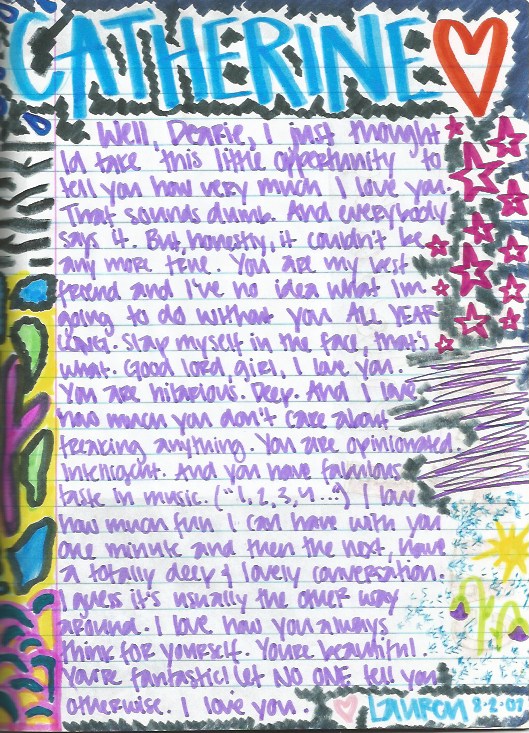 CATHERINE
Well, Dearie, I just thought
I'd take this little opportunity to
tell you how very much I love you.
That sounds dumb. And everybody
says it. But, honestly, it couldn't be
any more true. You are my best
friend and I've no idea what I'm
going to do without you ALL YEAR
LONG. Slap myself in the face, that's
what. Good lord, girl, I love you.
You are hilarious. Deep. And I love
how much you don't care about
freaking anything. You are opinionated.
Intelligent. And you have fabulous
taste in music. ("1, 2, 3, 4...") I love
how much fun I can have with you
one minute and then the next, have
a totally deep & lovely conversation.
I guess it's usually the other way
around. I love how you always
think for yourself. You're beautiful.
You're fantastic! Let NO ONE tell you
otherwise. I love you.
Lauren 8.2.07